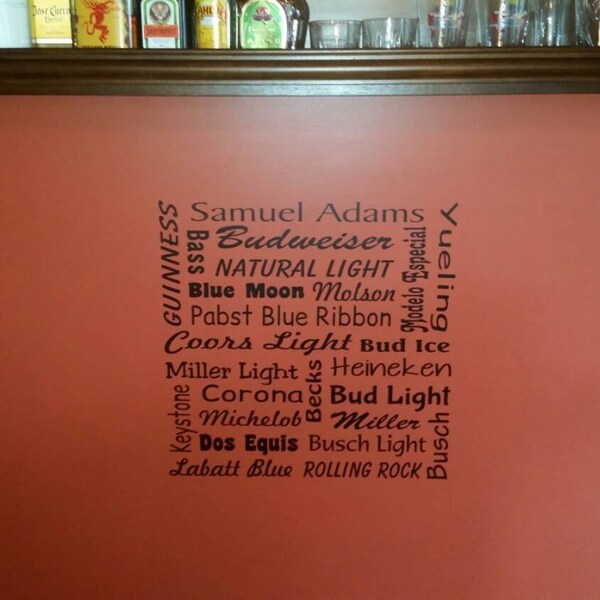 Jose Cuervo
GUINNESS
Samuel Adams
Yueling
Bass
Budweiser
Modelo Especial
NATURAL LIGHT
Blue Moon
Molson
Pabst Blue Ribbon
Coors Light
Bud Ice
Miller Light
Becks
Heineken
Keystone
Corona
Bud Light
Michelob
Miller
Busch
Dos Equis
Busch Light
Labatt Blue
ROLLING ROCK